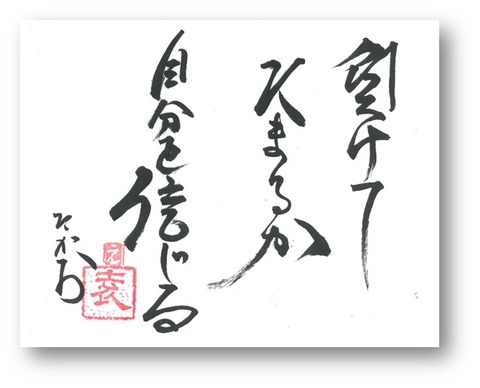 負けて
たまるか
自分を信じる